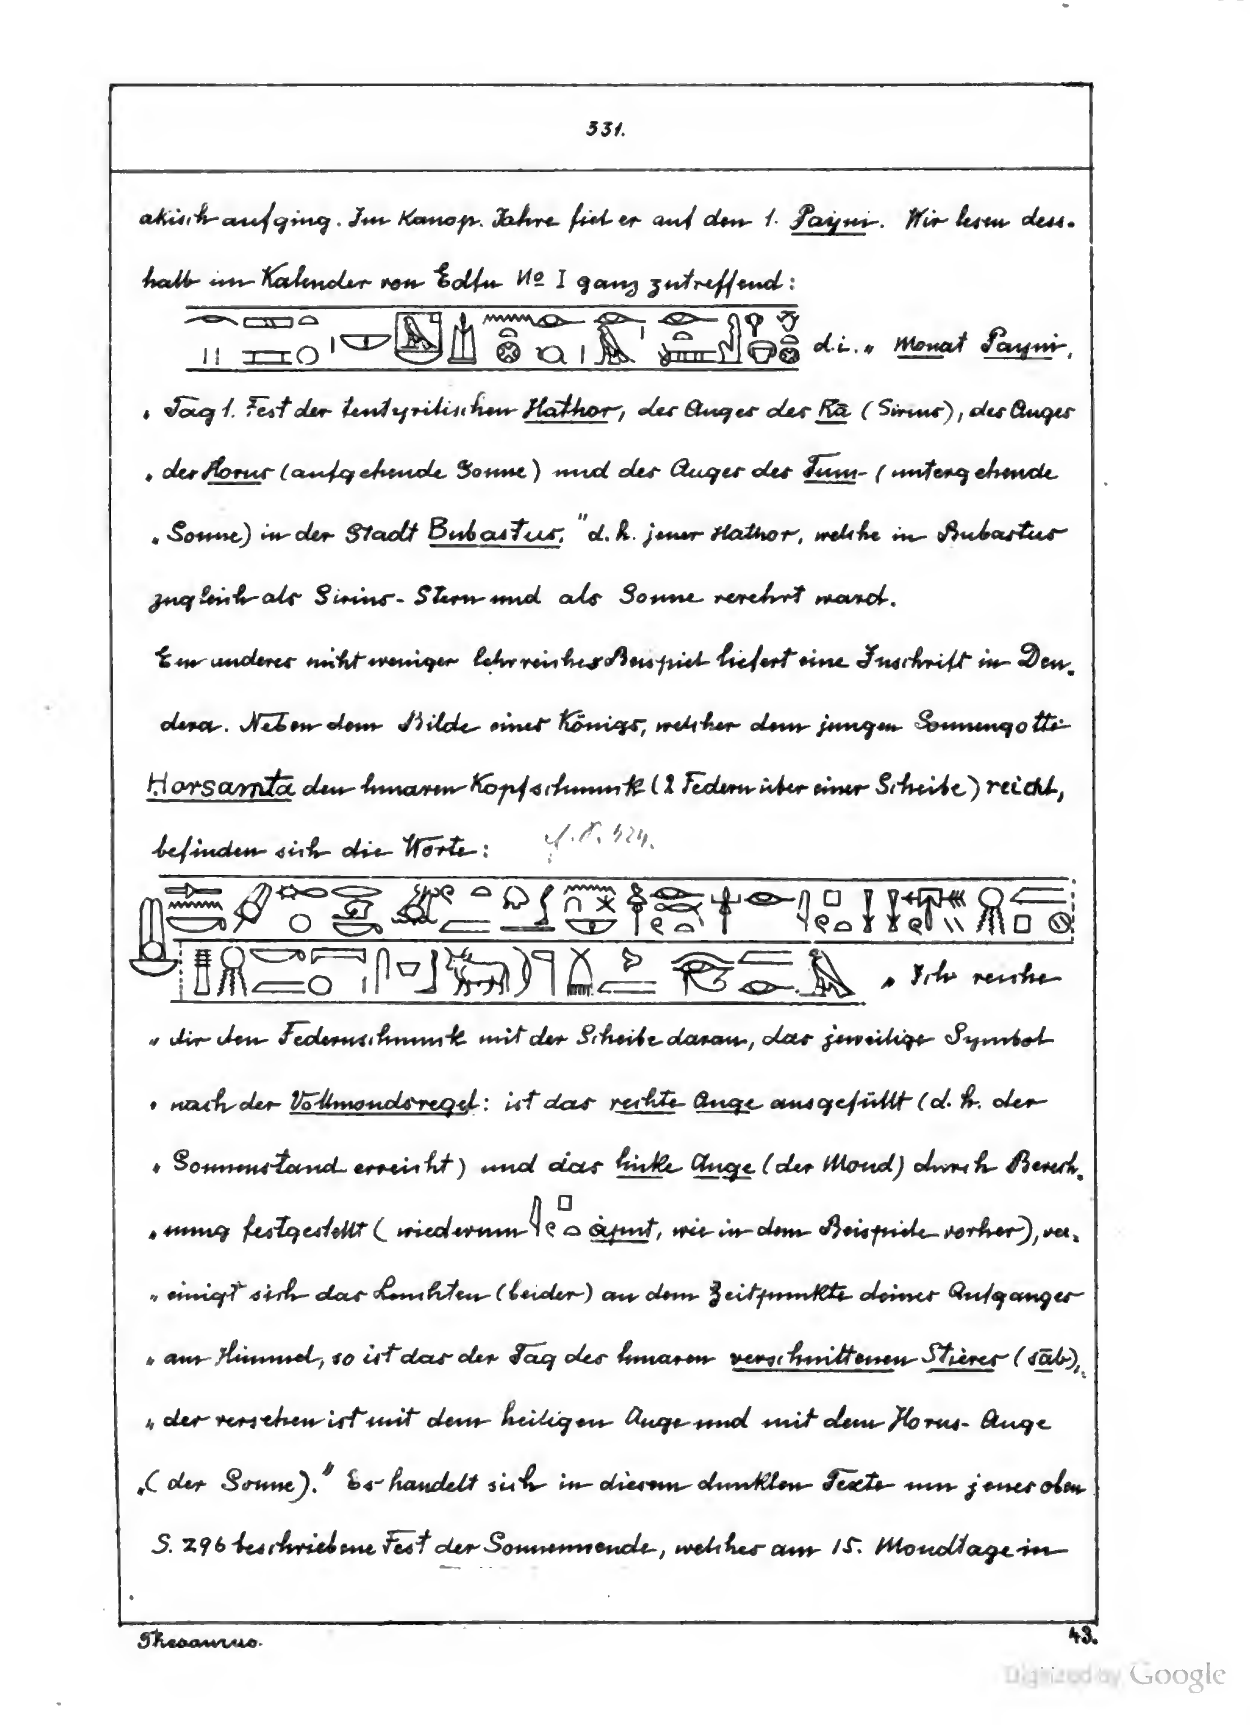 331.
akisch aufging. Im Kanop. Jahre fiel er auf den 1. Payni. Wir lesen dess-
halb im Kalender von Edfu No I ganz zutreffend:
d.i. „Monat Payni,
„Tag 1. Fest der tentyritischen Hathor, des Auges des Rā (Sirius), des Auges
„des Horus (aufgehende Sonne) und des Auges des Tum- (untergehende
„Sonne) in der Stadt Bubastus," d.h. jener Hathor, welche in Bubastus
zugleich als Sirius-Stern und als Sonne verehrt ward.
Ein anderes nicht weniger lehrreiches Beispiel liefert eine Inschrift in Den-
dera. Neben dem Bilde eines Königs, welcher dem jungen Sonnengotte
Horsamta den lunaren Kopfschmuck (2 Federn über einer Scheibe) reicht,
befinden sich die Worte: cf. S. 324.
„Ich reiche
„dir den Federnschmuck mit der Scheibe daran, das jeweilige Symbol
„nach der Vollmondsregel: ist das rechte Auge ausgefüllt (d.h. der
„Sonnenstand erreicht) und das linke Auge (der Mond) durch Berech-
„nung festgestellt (wiederum àput, wie in dem Beispiele vorher), ver-
„einigt sich das Leuchten (beider) an dem Zeitpunkte deines Aufganges
„am Himmel, so ist das der Tag des lunaren verschnittenen Stieres (sāb),
„der versehen ist mit dem heiligen Auge und mit dem Horus-Auge
„(der Sonne)." Es handelt sich in diesem dunklen Texte um jenes oben
S. 296 beschriebene Fest der Sonnenwende, welches am 15. Mondtage in
Thesaurus. 43.
Digitized by Google